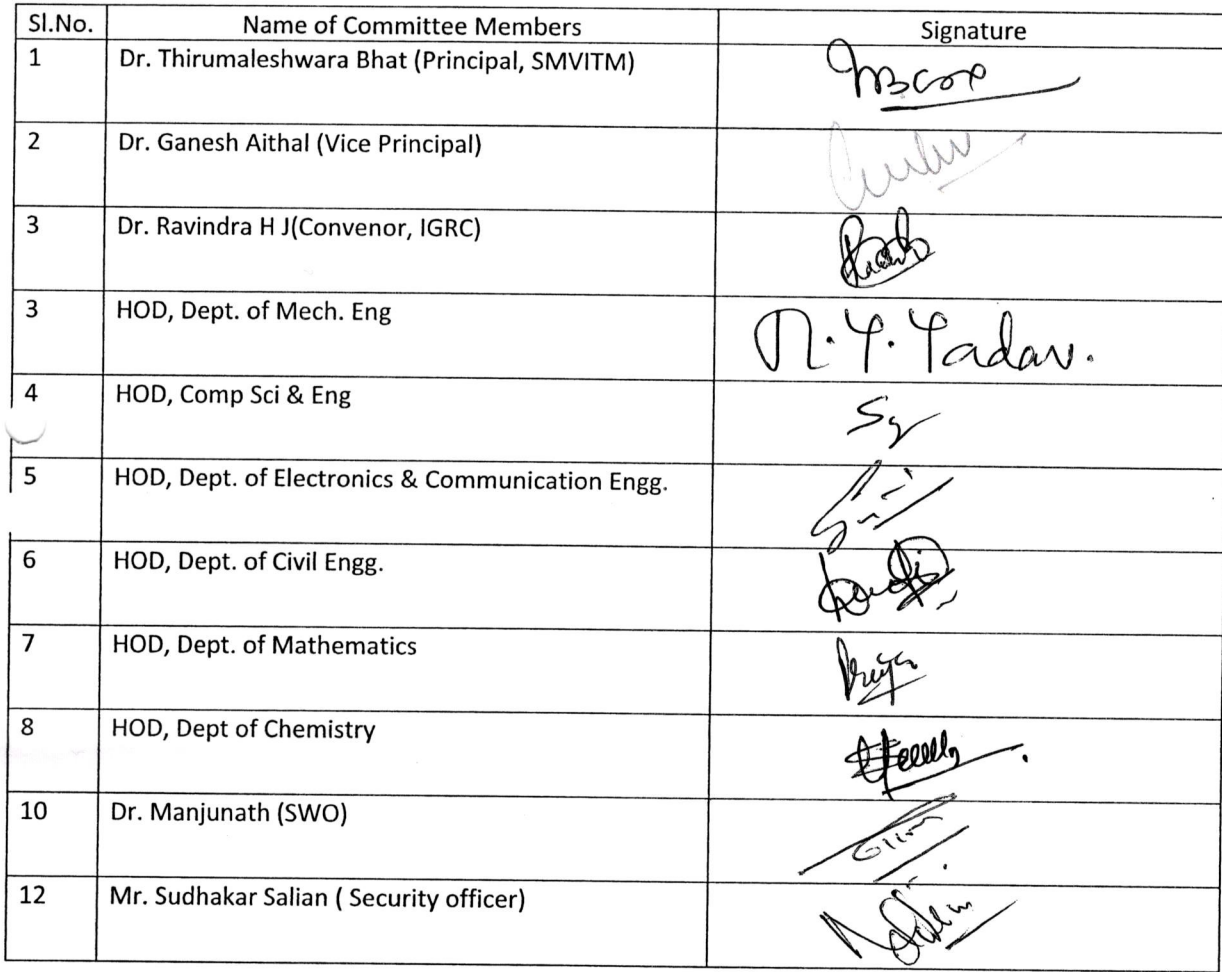 Sl.No. Name of Committee Members Signature
1 Dr. Thirumaleshwara Bhat (Principal, SMVITM)
2 Dr. Ganesh Aithal (Vice Principal)
3 Dr. Ravindra H J(Convenor, IGRC)
3 HOD, Dept. of Mech. Eng N. Y. Yadav.
4 HOD, Comp Sci & Eng
5 HOD, Dept. of Electronics & Communication Engg.
6 HOD, Dept. of Civil Engg.
7 HOD, Dept. of Mathematics
8 HOD, Dept of Chemistry
10 Dr. Manjunath (SWO)
12 Mr. Sudhakar Salian ( Security officer)